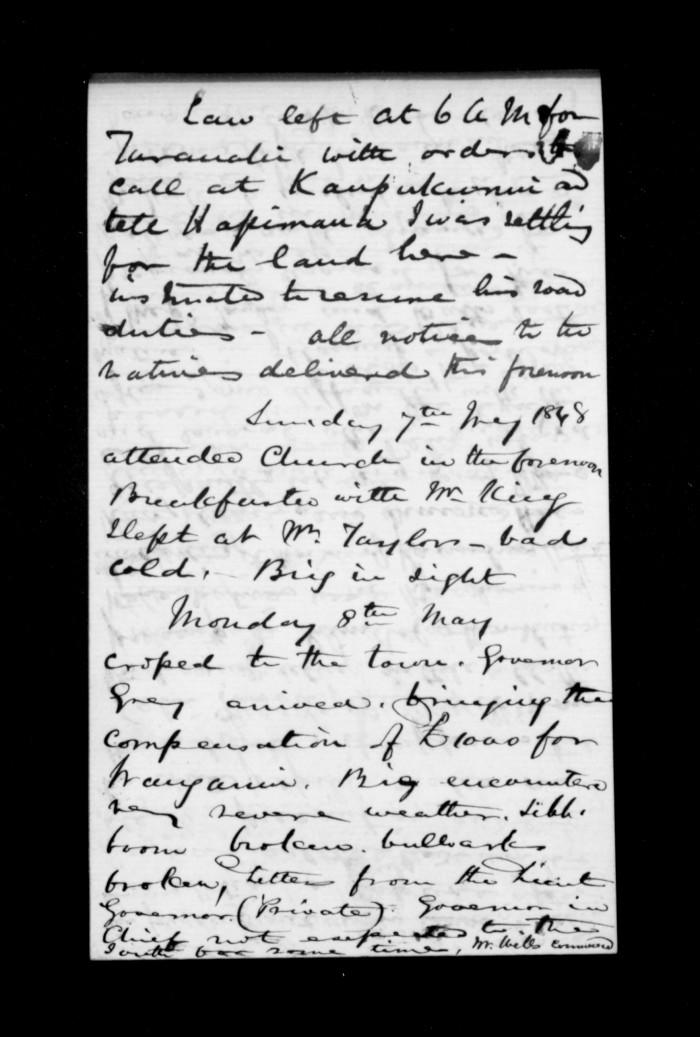 Law left at 6 A M for
Taranaki with orders to
call at Kaupukunui ad
tell Hapimana I was settling
for the land here -
instructed to resume his road
duties - all notices to the
natives delivered this forenoon
Sunday 7th May 1848
attended Church in the forenoon
Breakfasted with Mr King
Slept at Mr Taylors - bad
cold. - Brig in sight
Monday 8th May
crossed to the town. Governor
Grey arrived. bringing the
compensation of £1000 for
Wanganui. Brig encountered
very severe weather. Jibb.
boom broken. bullwarks
broken, letter from the Lieut
Governor (Private). Governor in
Chief not expected to the
South for some time, Mr. Wills